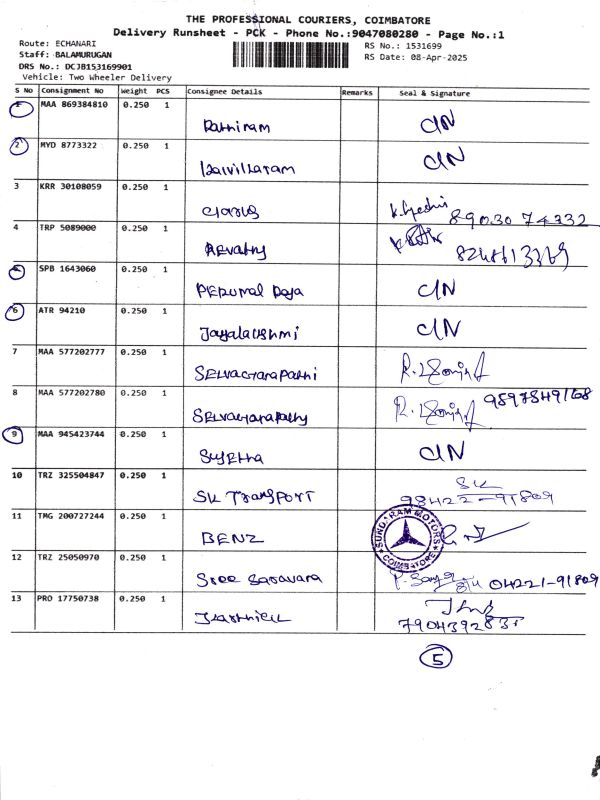 THE PROFESSIONAL COURIERS, COIMBATORE
Delivery Runsheet - PCK - Phone No.:9047080280 - Page No.:1
Route: ECHANARI
RS No.: 1531699
Staff: BALAMURUGAN
RS Date: 08-Apr-2025
DRS No.: DCJB153169901
Vehicle: Two Wheeler Delivery
S No Consignment No Weight PCS Consignee Details Remarks Seal & Signature
1 MAA 869384810 0.250 1 C/N
2 MYD 8773322 0.250 1 C/N
3 KRR 30108059 0.250 1 89030 74332
4 TRP 5089000 0.250 1 REvathy 8248613369
5 SPB 1643060 0.250 1 PERUMAL Raja C/N
6 ATR 94210 0.250 1 Jayalakshmi C/N
7 MAA 577202777 0.250 1
8 MAA 577202780 0.250 1
9 MAA 945423744 0.250 1 SUJETHA C/N
10 TRZ 325504847 0.250 1 SK TransPORT SK
98422-91809
11 TMG 200727244 0.250 1 BENZ SUND.RAM MOTORS COIMBATORE
12 TRZ 25050970 0.250 1 SREE Saravara 04221-91809
13 PRO 17750738 0.250 1
5